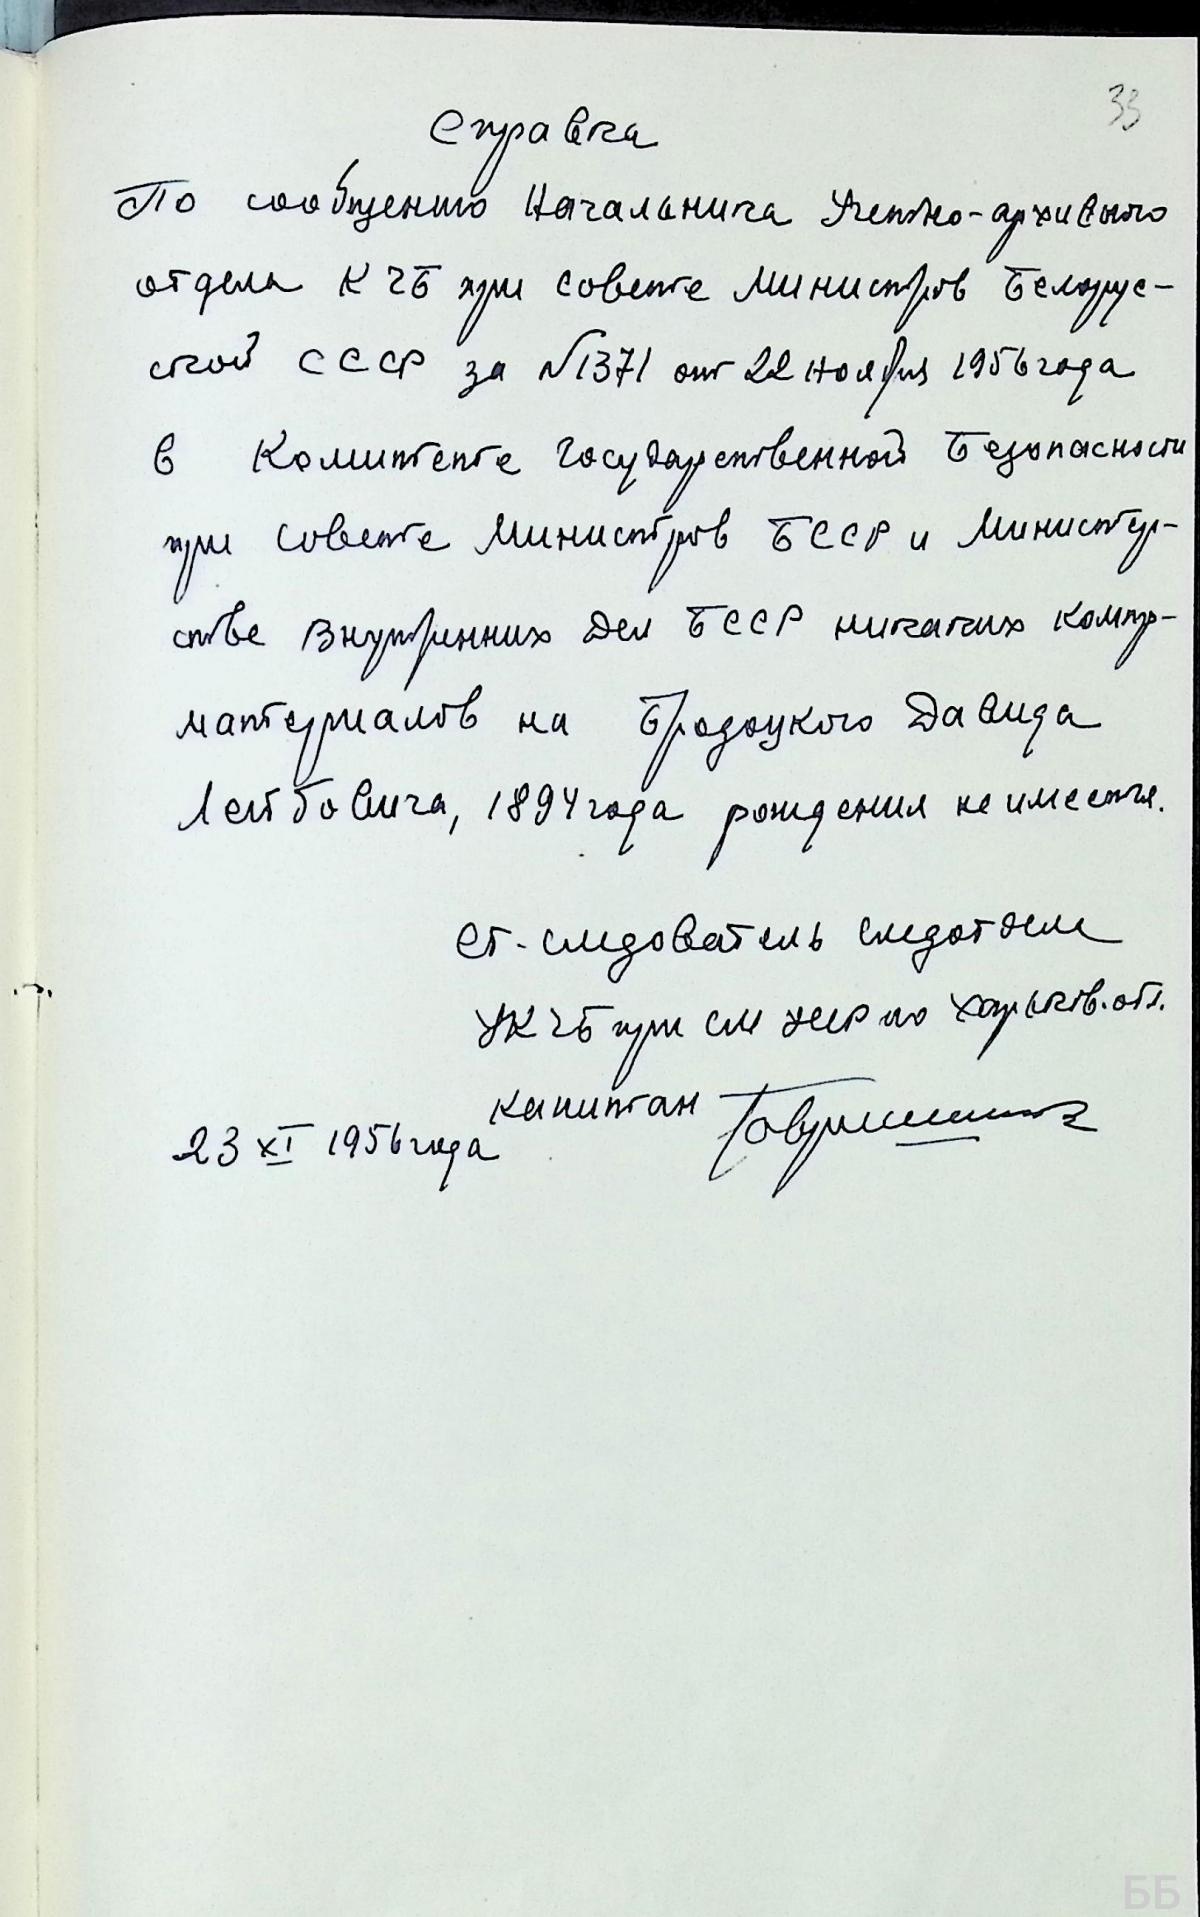 33
Справка
По сообщению Начальника Учетно-архивного
отдела КГБ при Совете Министров Белорус-
ской ССР за №1371 от 22 ноября 1956 года
в Комитете Государственной Безопасности
при Совете Министров БССР и Министер-
стве Внутренних Дел БССР никаких компр-
материалов на Бродоцкого Давида
Лейбовича, 1894 года рождения не имеется.
Ст. следователь следотдела
УКГБ при СМ УССР по Харьков. обл.
капитан
23 XI 1956 года
ББ